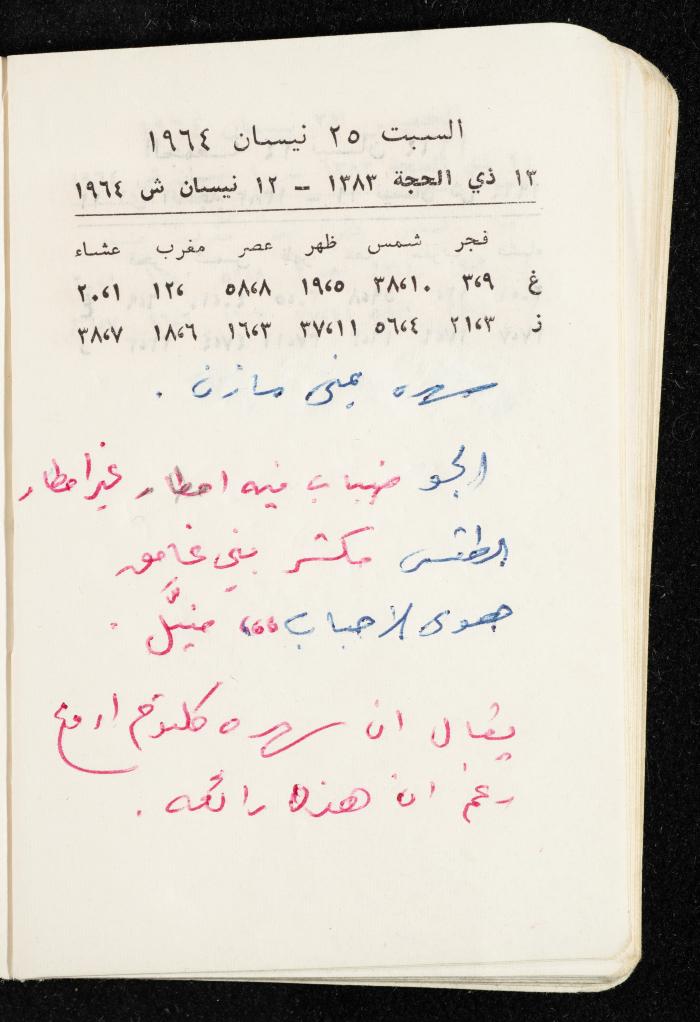 السبت ٢٥ نيسان ١٩٦٤
١٣ ذي الحجة ١٣٨٣ – ١٢ نيسان ش ١٩٦٤
فجر شمس ظهر عصر مغرب عشاء
غ ٣،٩ ٣٨،١٠ ١٩،٥ ٥٨،٨ ١٢، ٢٠،١
ز ٢١،٣ ٥٦،٤ ٣٧،١١ ١٦،٣ ١٨،٦ ٣٨،٧
سهره بمنى مازن .
الجو ضباب فيه امطار غير امطار
الطقس مكشر بني غامق
هوى الاحباب ،،، منيّل .
يقال ان سهره كلثوم اروع
رغم ان هذه رائعه .